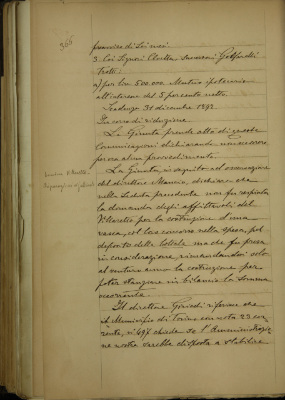 568
3. Coi Signori
a) per lire 500.000 Mutuo ipotecario
all'interesse del 5 per cento netto
Scadenza 31 dicembre 1892
In corso di riduzione
La Giunta prende atto di queste
comunicazioni dichiarando non essere
per ora alcun procedimento.
La Giunta, in seguito ad osservazione
del direttore, dichiara che
nella seduta precedente non fu respinta
la domanda degli affittavoli del
Vilaretto per la costruzione d'una
vasca, col loro concorso nella spesa, pel
deposito della ma che fu presa
in considerazione, rimandandosi solo
al venturo anno la costruzione per
poter stanziare in bilancio la somma
occorrente.
Il direttore riferisce che
il Municipio di Torino con nota 23 cor-
rente, n. 497 chiede se l'Amministrazio-
ne nostra sarebbe disposta a stabilire